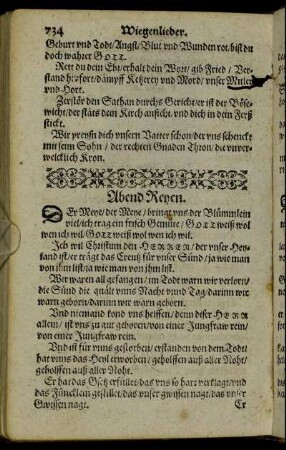 734 Wiegenlieder.
Geburt vnd Todt/ Angst/ Blut vnd Wunden rot/ bist du
doch wahrer GOTT.
Rett du dein Ehr/ erhalt dein Wort/ gib Fried / Ver-
stand hie fort/ dämpff Ketzerey vnd Mord/ vnser Mitler
vnd Hort.
Zerstör den Sathan durchs Gericht/ er ist der Böse-
wicht/ der stäts dein Kirch anficht/ vnd dich in dem Ferß
sticht.
Wir preysn dich vnsern Vatter schon/ der vns schenckt
mit seim Sohn / der rechten Gnaden Thron/ die vnver-
welcklich Kron.
Abend Reyen.
DEr Meye/ der Meye / bringt vns der Blümmlein
viel/ ich trag ein frisch Gemüte / GOTT weiß wol
wen ich wil/ GOTT weiß wol wen ich wil.
Ich wil Christum den HERREN / der vnser Hey-
land ist/ er trägt das Creutz für vnser Sünd / ja wie man
von ihm list/ ja wie man von ihm list.
Wir waren all gefangen / im Todt warn wir verlorn/
die Sünd die quält vnns Nacht vnnd Tag/ darinn wir
warn geborn/ darinn wir warn geborn.
Vnd niemand kond vns helffen/ denn diser HERR
allein / ist vns zu gut geboren/ von einer Jungfraw rein/
von einer Jungfraw rein.
Vnd ist für vnns gestorben/ erstanden von dem Todt/
hat vnns das Heyl erworben / geholffen auß aller Noht/
geholffen auß aller Noht.
Er hat das Gsetz erfüllet/ das vns so hart verklagt/ vnd
das Fünckleín gestillet/ das vnser gwissen nagt/ das vnser
Gwissen nagt. Er